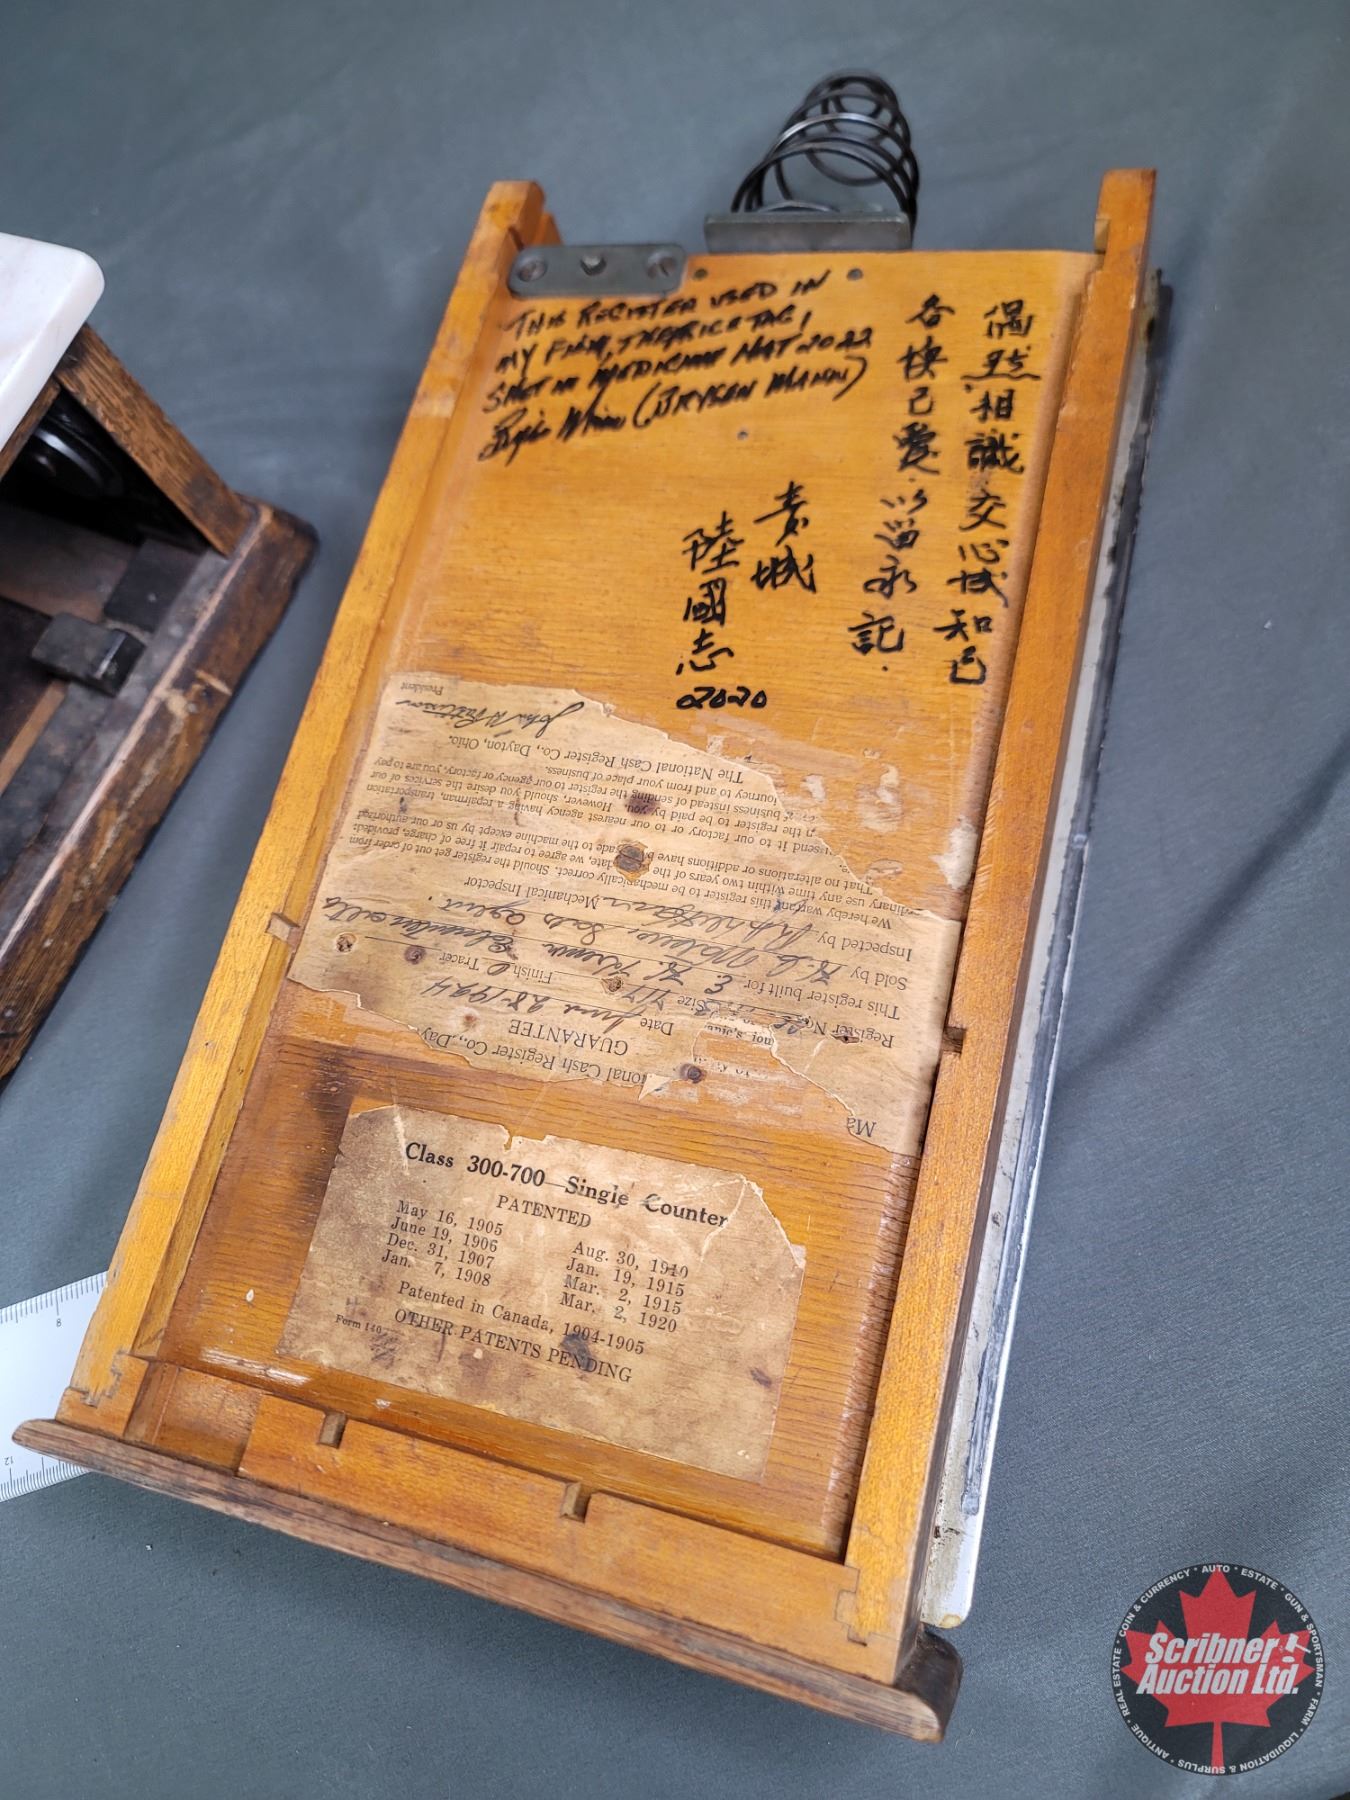 THIS REGISTER USED IN
MY FILM, THE PRICE TAG,
SHOT IN MEDICINE HAT 2022
(BRYSEN MANN)
偶然相識交心成知己
各
己愛以留永記
城
陸國志
2020
John H Patterson
President
The National Cash Register Co., Dayton, Ohio.
journey to and from your place of business.
of business instead of sending the register to our agency or factory, you are to pay
in the register to be paid by you. However, should you desire the services of our
send it to our factory or to our nearest agency having a repairman, transportation
That no alterations or additions have been made to the machine except by us or our authorized
ordinary use any time within two years of the date, we agree to repair it free of charge, provided:
We hereby warrant this register to be mechanically correct. Should the register get out of order from
Inspected by Mechanical Inspector
Sold by Sales Agent.
This register built for
Register No. Size 717 Finish Tracer
Date June 28-1924
GUARANTEE
ional Cash Register Co., Day
Ma
Class 300-700—Single Counter
PATENTED
May 16, 1905 Aug. 30, 1910
June 19, 1906 Jan. 19, 1915
Dec. 31, 1907 Mar. 2, 1915
Jan. 7, 1908 Mar. 2, 1920
Patented in Canada, 1904-1905
Form 140 OTHER PATENTS PENDING
8
12
COIN & CURRENCY • AUTO • ESTATE • GUN & SPORTSMAN • FARM • LIQUIDATION & SURPLUS • ANTIQUE • REAL ESTATE
Scribner
Auction Ltd.